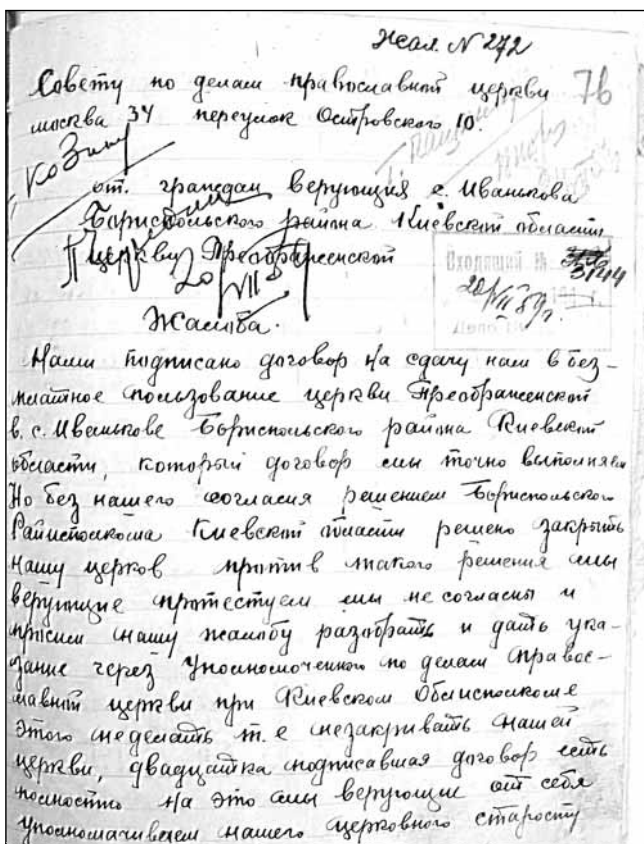 Жал. N 272
Совету по делам православной церкви 76
москва 34 переулок Островского 10.
от. граждан верующия с. Иванькова
Бориспольского района Киевской области
Церкви Преображенской
Входящий №
20/VII 59г.
Жалоба.
Нами подписано договор на сдачу нам в без-
платное пользование церкви Преображенской
в. с. Иванькове Бориспольского района Киевской
области, который договор мы точно выполняем
Но без нашего согласия решением Бориспольского
Райисполкома Киевской области решено закрыть
нашу церков против такого решения мы
верующие протестуем мы не согласны и
просим нашу жалобу разобрать и дать ука-
зание через Уполномоченного по делам Правос-
лавной церкви при Киевском Облисполкоме
этого неделать т.е незакривать нашей
церкви, двадцатка подписавшая договор есть
полностью на это мы верующие от себя
уполномачиваем нашего церковного старосту